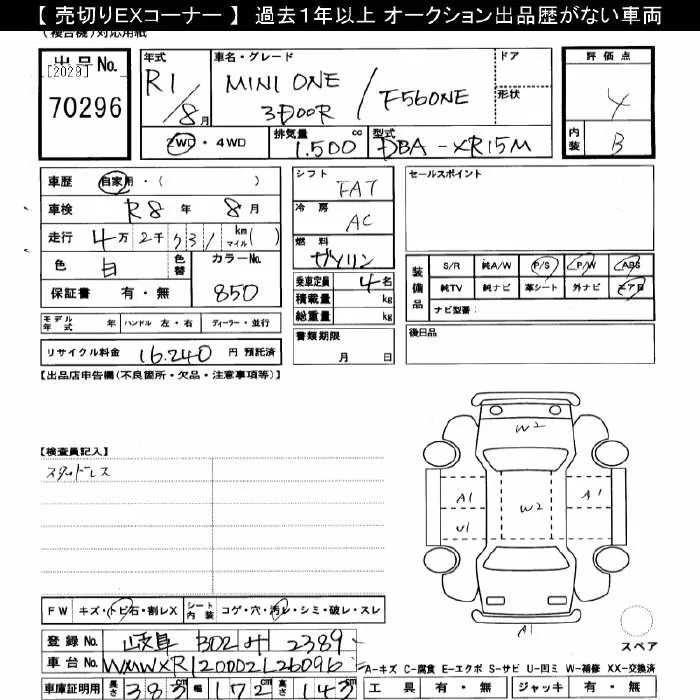 【 売切りEXコーナー 】 過去1年以上 オークション出品歴がない車両
(複合機)対応用紙
出品No.
[2029]
70296
年式
R1/8月
車名・グレード
MINI ONE
3-DOOR / F56ONE
ドア
形状
2WD・4WD
排気量
1.500 cc
型式
DBA-XR15M
評価点
4
内装
B
車歴 自家用・( )
車検 R8年 8月
走行 4万2千731 km マイル( )
色 白 色替
カラーNo. 850
保証書 有・無
モデル年式 年 ハンドル 左・右 ディーラー・並行
リサイクル料金 16.240 円 預託済
シフト
FAT
冷房
AC
燃料
ガソリン
乗車定員 4名
積載量 kg
総重量 kg
書類期限
月 日
セールスポイント
装備品
S/R 純A/W P/S P/W ABS
純TV 純ナビ 革シート 外ナビ エアB
ナビ型番:
後日品
【出品店申告欄(不良箇所・欠品・注意事項等)】
【検査員記入】
スタッドレス
W2
A1
U1
W2
A1
A1
スペア
FW キズ・トビ石・割レX シート内装 コゲ・穴・汚レ・シミ・破レ・スレ
登録No. 岐阜 302 2389
車台No. WMWXR120002L26096
A-キズ C-腐食 E-エクボ S-サビ U-凹ミ W-補修 XX-交換済
車庫証明用 長さ 383cm 幅 172cm 高さ 143cm
工具 有・無 ジャッキ 有・無